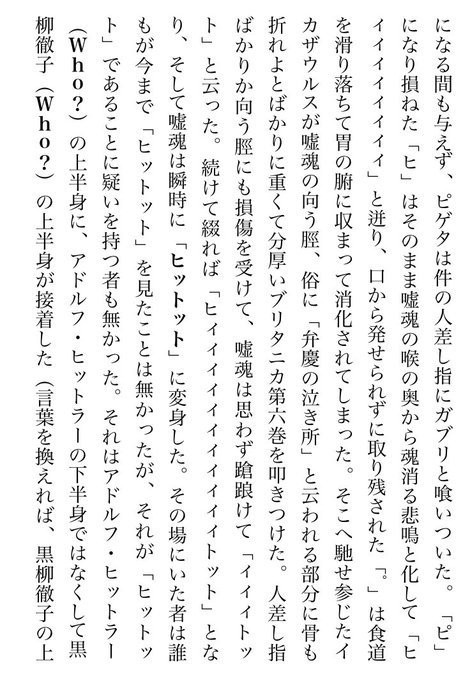 になる間も与えず、ピゲタは件の人差し指にガブリと喰いついた。「ピ」
になり損ねた「ヒ」はそのまま嘘魂の喉の奥から魂消る悲鳴と化して「ヒ
ィィィィィィィ」と迸り、口から発せられずに取り残された「。」は食道
を滑り落ちて胃の腑に収まって消化されてしまった。そこへ馳せ参じたイ
カザウルスが嘘魂の向う脛、俗に「弁慶の泣き所」と云われる部分に骨も
折れよとばかりに重くて分厚いブリタニカ第六巻を叩きつけた。人差し指
ばかりか向う脛にも損傷を受けて、嘘魂は思わず蹌踉けて「ィィィトッ
ト」と云った。続けて綴れば「ヒィィィィィィィィィィトット」とな
り、そして嘘魂は瞬時に「ヒットット」に変身した。その場にいた者は誰
もが今まで「ヒットット」を見たことは無かったが、それが「ヒットッ
ト」であることに疑いを持つ者も無かった。それはアドルフ・ヒットラー
（Who？）の上半身に、アドルフ・ヒットラーの下半身ではなくして黒
柳徹子（Who？）の上半身が接着した（言葉を換えれば、黒柳徹子の上